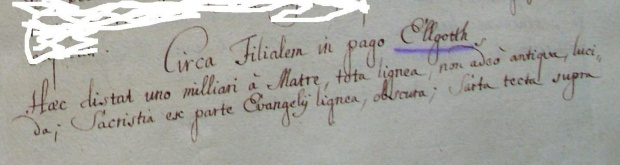 Circa Filialem in pago Ellgotth
Hæc distat uno milliari à Matre, tota lignea, non adeò antiqua, luci=
da; Sacristia ex parte Evangelij lignea, obscura; Sarta tecta supra